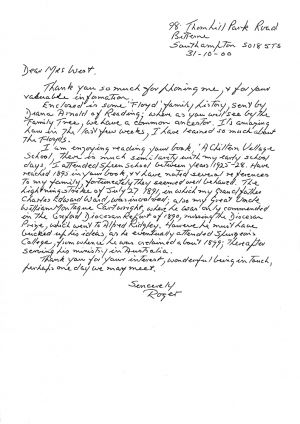 98 Thornhill Park Road
Bitterne
Southampton SO18 5TS
31-10-00
Dear Mrs West,
Thank you so much for phoning me, & for your
valuable information.
Enclosed is some 'Floyd' family history, sent by
Diana Arnold of Reading; when as you will see by the
Family Tree, we have a common ancestor. It's amazing
how in the last few weeks, I have learned so much about
the Floyds.
I am enjoying reading your book, 'A Chilton Village
School', there is much similarity with my early school
days, I attended Sheen School between years 1925-28. Have
reached 1895 in your book, & have noted several references
to my family, fortunately they seemed well behaved. The
Lightning stroke of July 27 1891, in which my grandfather
Charles Edward Ward, was involved; also my Great Uncle
William Montague Cartwright, when he was only commended
in the Oxford Diocesan Report of 1890, missing the Diocesan
Prize, which went to Alfred Ridgley. However he must have
bucked up his ideas, as he eventually attended Spurgeons
College, from where he was ordained about 1899; thereafter
serving his ministry in Australia.
Thank you for your interest, wonderful being in touch,
perhaps one day we may meet.
Sincerely
Roger